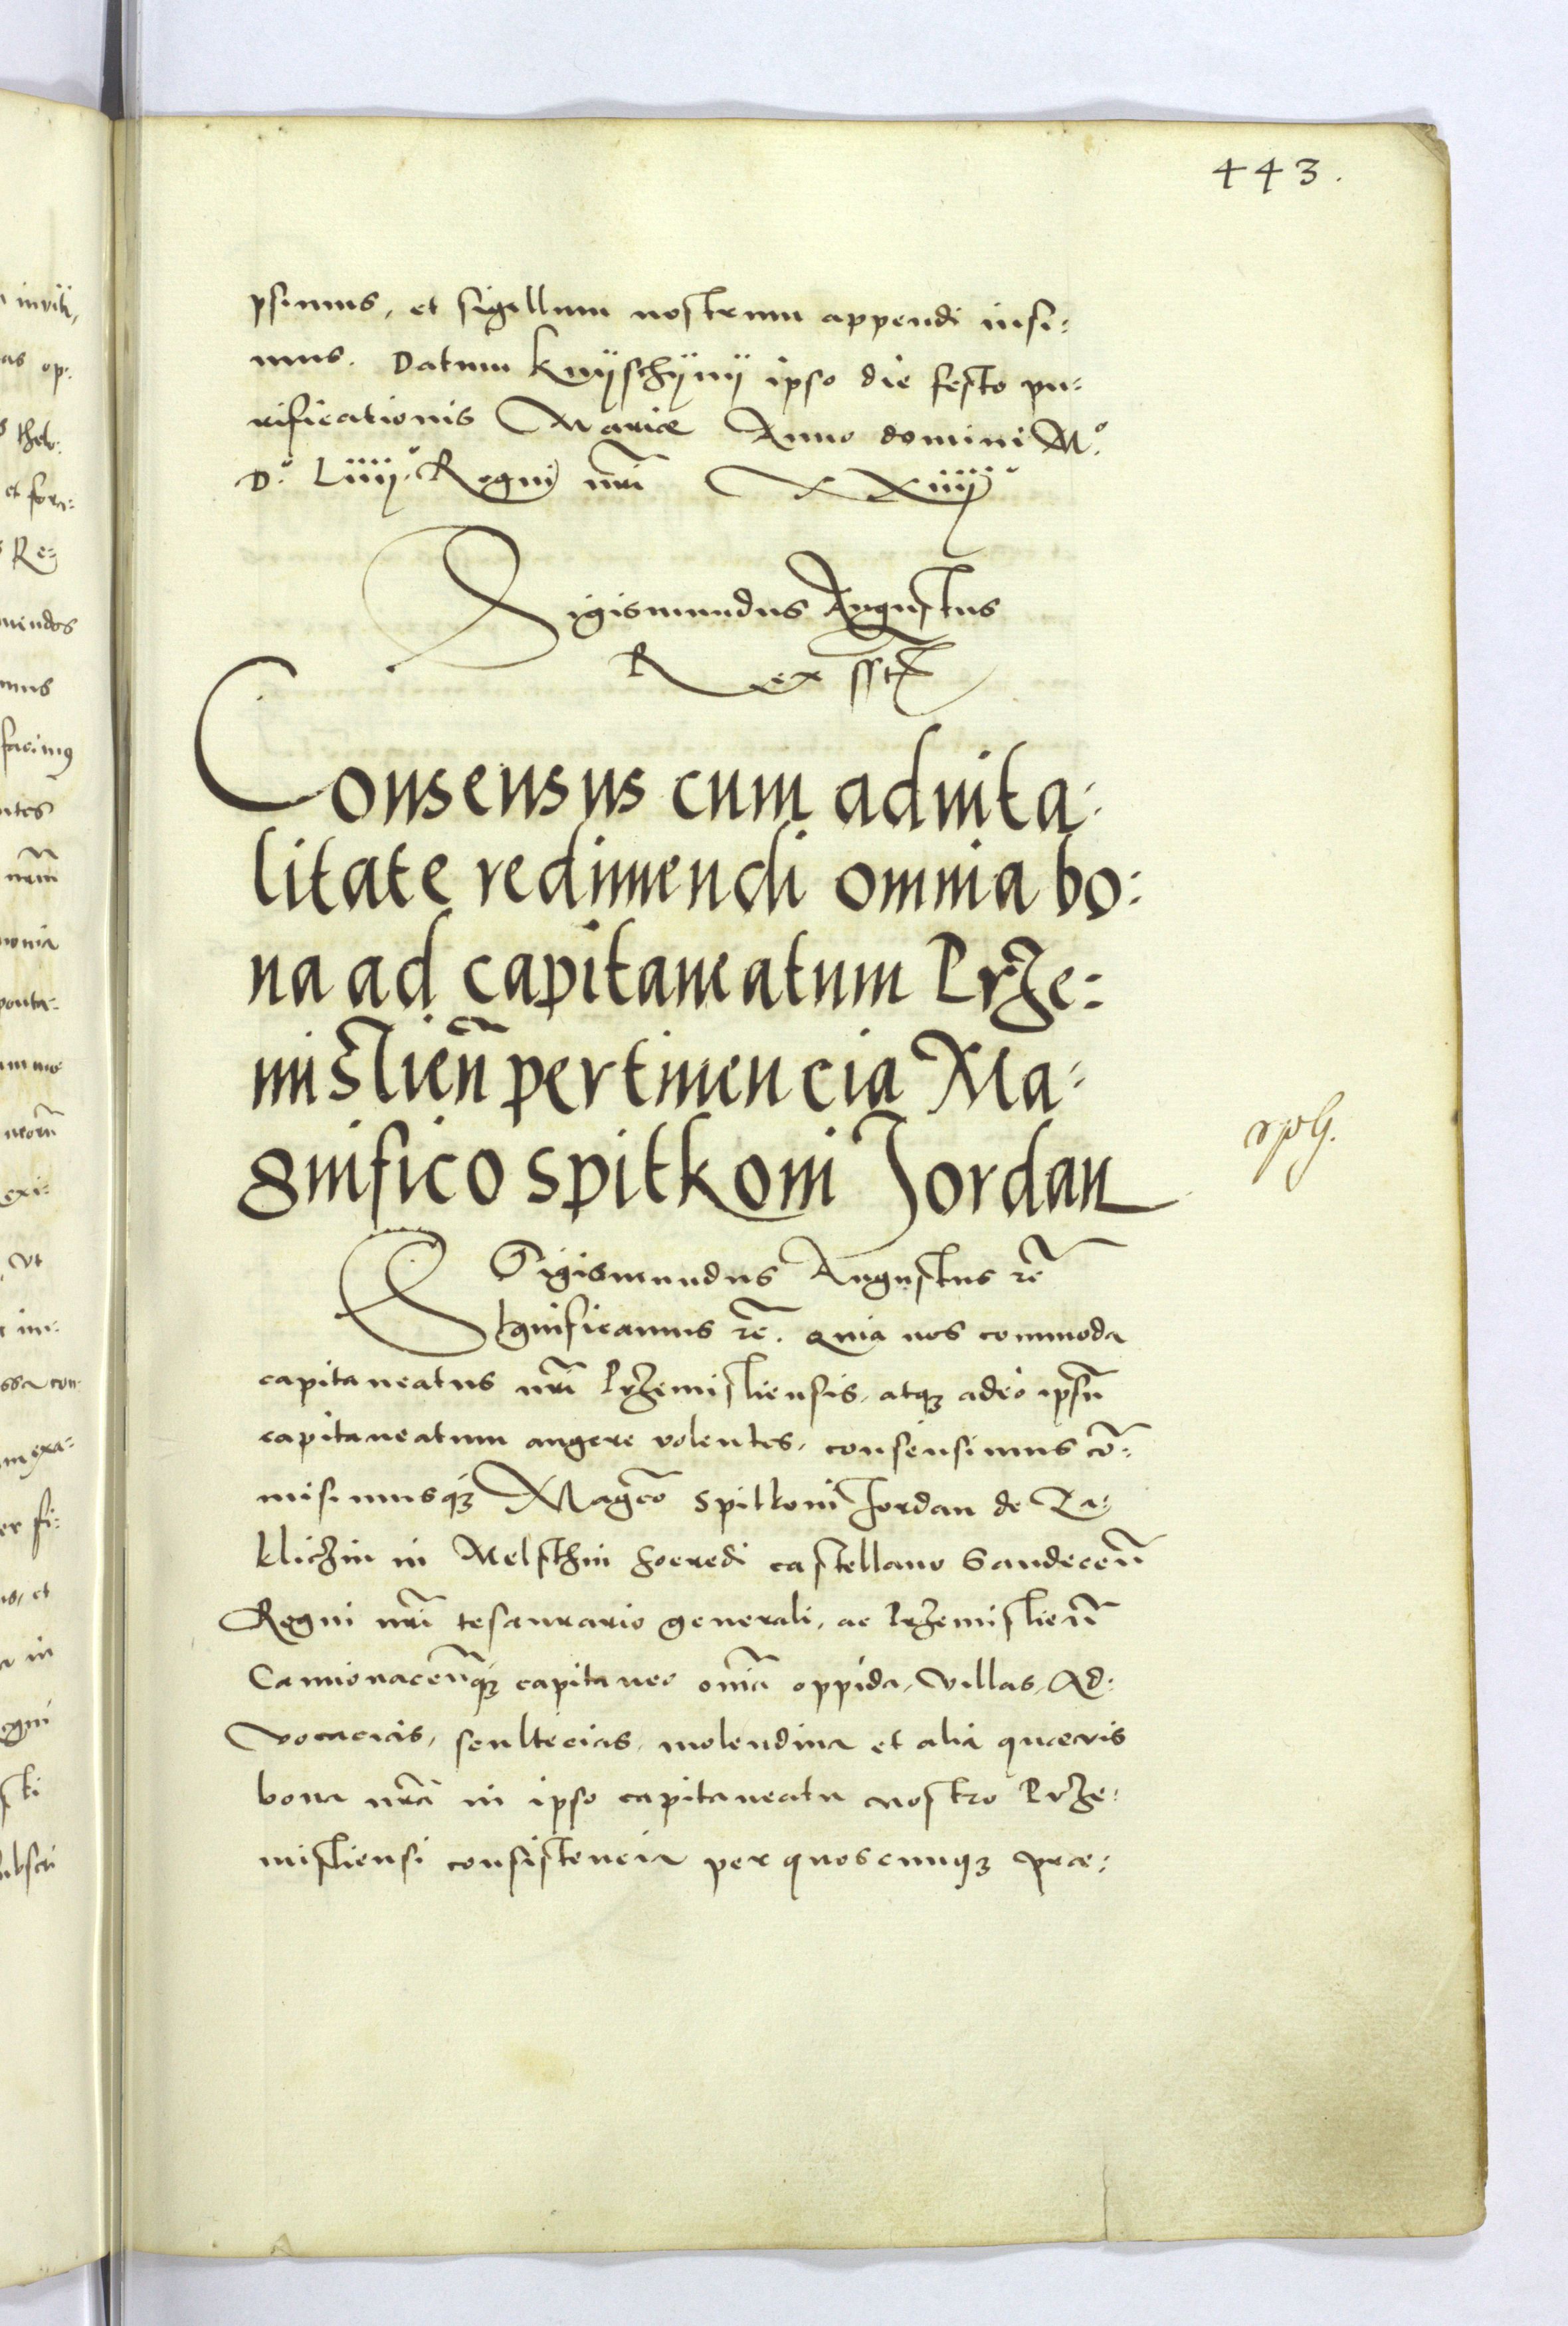 443.
psimus, et sigillum nostrum appendi iussi:
mus. Datum Knÿschÿnÿ ipso die festo pu:
rificationis Mariæ Anno domini Mº.
Dº. Liiijº. Regni nr̃i XXiiijº
Sigismundus Augustus
Rex sst
Consensus cum aduita:
litate redimendi omnia bo:
na ad capitaneatum Prze:
mislień pertinencia Ma:
gnifico spitkoni Jordan
Sigismundus Augustus rc̃
Significamus rc̃. quia nos commoda
capitaneatus nr̃i Przemisliensis, atqꝫ adeo ipsũ
capitaneatum augere volentes, consensimus cõ:
misimusqꝫ Magco̅ Spitkoni Jordan de Za:
kliczin in Melsthin hoeredi castellano Sandeceñ
Regni nr̃i tesaurario generali, ac Przemislieñ
Camionaceñqꝫ capitaneo oĩa oppida, villas, Ad:
vocacias, scultecias, molendina et alia quævis
bona nr̃a in ipso capitaneatu nostro Prze:
misliensi consistencia per quoscunqꝫ præ: